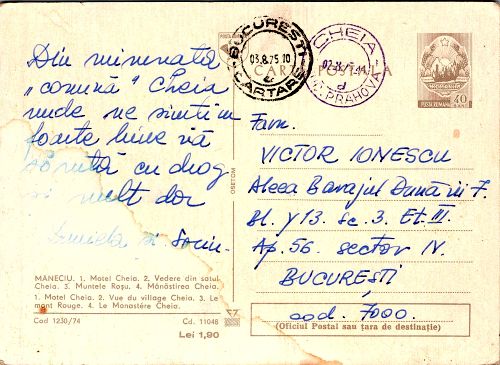 Din minunata
„comună” Cheia
unde ne simțim
foarte bine vă
sărută cu drag
și mult dor
Daniela și Sorin.
MANECIU. 1. Motel Cheia. 2. Vedere din satul
Cheia. 3. Muntele Roșu. 4. Mănăstirea Cheia.
1. Motel Cheia. 2. Vue du village Cheia. 3. Le
mont Rouge. 4. Le Monastère Cheia.
Cod 1230/74 Cd. 11048
Lei 1,90
OSETCM
BUCUREȘTI
03.8.75.10
CARTARE
CHEIA
JUD. PRAHOVA
CARTA POȘTALA
POSTA ROMANA 40
Fam.
VICTOR IONESCU
Aleea Barajul Dunării 7.
Bl. Y 13. sc. 3. Et. III.
Ap. 56. sector IV.
BUCUREȘTI
cod. 7000.
(Oficiul Postal sau țara de destinație)